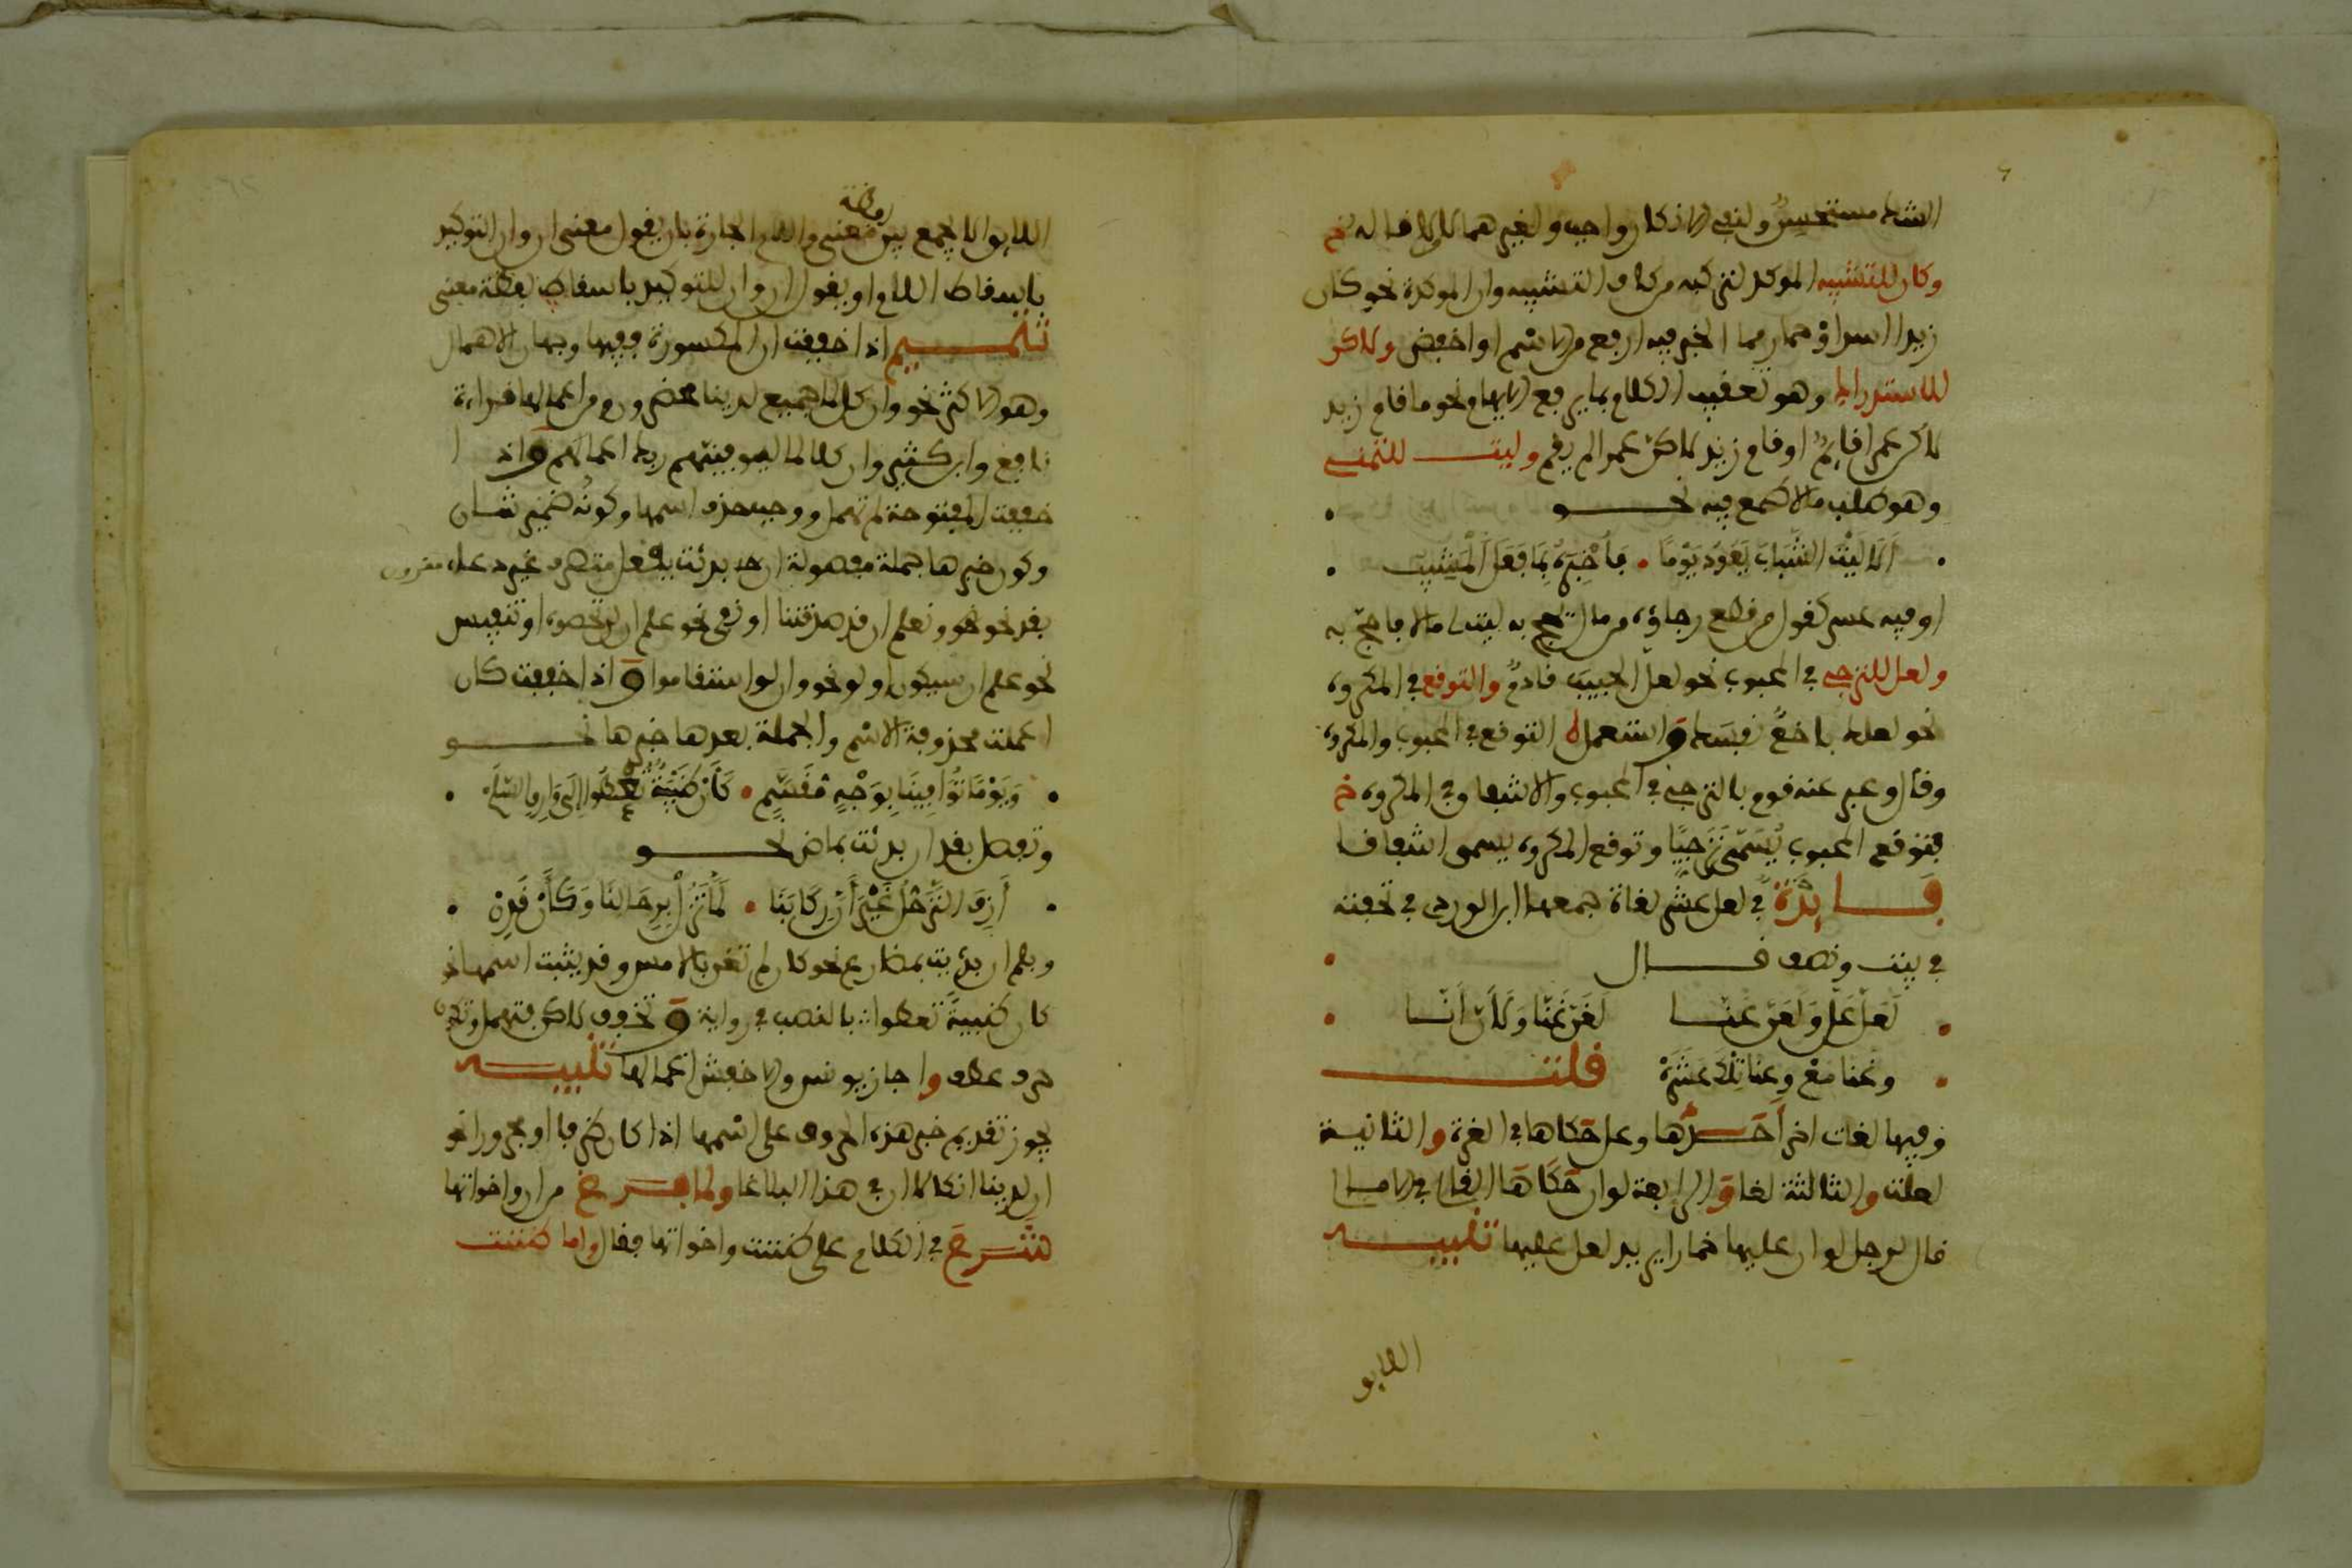 الشك مستحسن ولنفي الانكار واجب ولغيرهما لا لا قاله خ
وكان للتشبيه الموكد لتركبه من كاف التشبيه وان الموكدة نحو كان
زيدا اسد او حمار مما الخبر فيه ارفع من الاسم او اخفض ولاكن
للاستدراك وهو تعقيب الكلام بما يرفع الايهام نحو ما قام زيد
لاكن عمرا قايم او قام زيد لاكن عمرا لم يقم وليت للتمني
وهو طلب مالا طمع فيه نحو
الا ليت الشباب يعود يوما • فاخبره بما فعل المشيب
او فيه عسر كقول من قطع رجاؤه من مال يحج به ليت لي مالا فاحج به
ولعل للترجي في المحبوب نحو لعل الحبيب قادم والتوقع في المكروه
نحو لعلك باخع نفسك واستعمل التوقع في المحبوب والمكروه
وقال وعبر عنه قوم بالترجي في المحبوب والاشفاق في المكروه خ
فتوقع المحبوب يسمى ترجيا وتوقع المكروه يسمى اشفاقا
فايدة في لعل عشر لغات جمعها ابن الوردي في تحفته
في بيت ونصف قال
لعل عل ولعن عنا لغن غنا ولان انا
ونحنا مع وعنا تلك عشرة قلت
وفيها لغات اخر احدها وعل حكاها في الغرة والثانية
لعلت والثالثة لغا والرابعة لوان حكاها القالي في الامالي
قال لرجل لوان عليها خمارا يريد لعل عليها تنبيه
اللايو
اللايو الا يجمع بين لفظة معنى واللام الجارة بان يقول معنى ان وان التوكيد
باسقاط اللام او يقول ان وان للتوكيد باسقاط لفظة معنى
تتميم اذا خففت ان المكسورة ففيها وجهان الاهمال
وهو الاكثر نحو وان كل لما جميع لدينا محضرون ومن اعمالها قراءة
نافع وابن كثير وان كلا لما ليوفينهم ربك اعمالهم واذا
خففت المفتوحة لم تهمل ووجب حذف اسمها وكونه ضمير شان
وكون خبرها جملة مفصولة ان بدئت بفعل متصرف غير دعاء مقرون
بقد نحو نحو ونعلم ان قد صدقتنا او نفي نحو علم ان لن تحصوه او تنفيس
نحو علم ان سيكون او لو نحو وان لو استقاموا واذا خففت كان
اعملت محذوفة الاسم والجملة بعدها خبرها نحو
ويوما توافينا بوجه مقسم • كان ظبية تعطوا الى وارق السلم
وتفصل بقد ان بدئت بماض نحو
ازف الترحل غير ان ركابنا • لما تزل برحالنا وكان قدن
وبلم ان بدئت بمضارع نحو كان لم تغن بالامس وقد يثبت اسمها نحو
كان ظبية تعطوا بالنصب في رواية وتخفف لاكن فتهمل وتكون
حرف عطف واجاز يونس والاخفش اعمالها تنبيه
يجوز تقديم خبر هذه الحروف على اسمها اذا كان ظرفا او مجرورا نحو
ان لدينا انكالا ان في هذا لبلاغا ولما فرغ من ان واخواتها
شرع في الكلام على ظننت واخواتها فقال واما ظننت